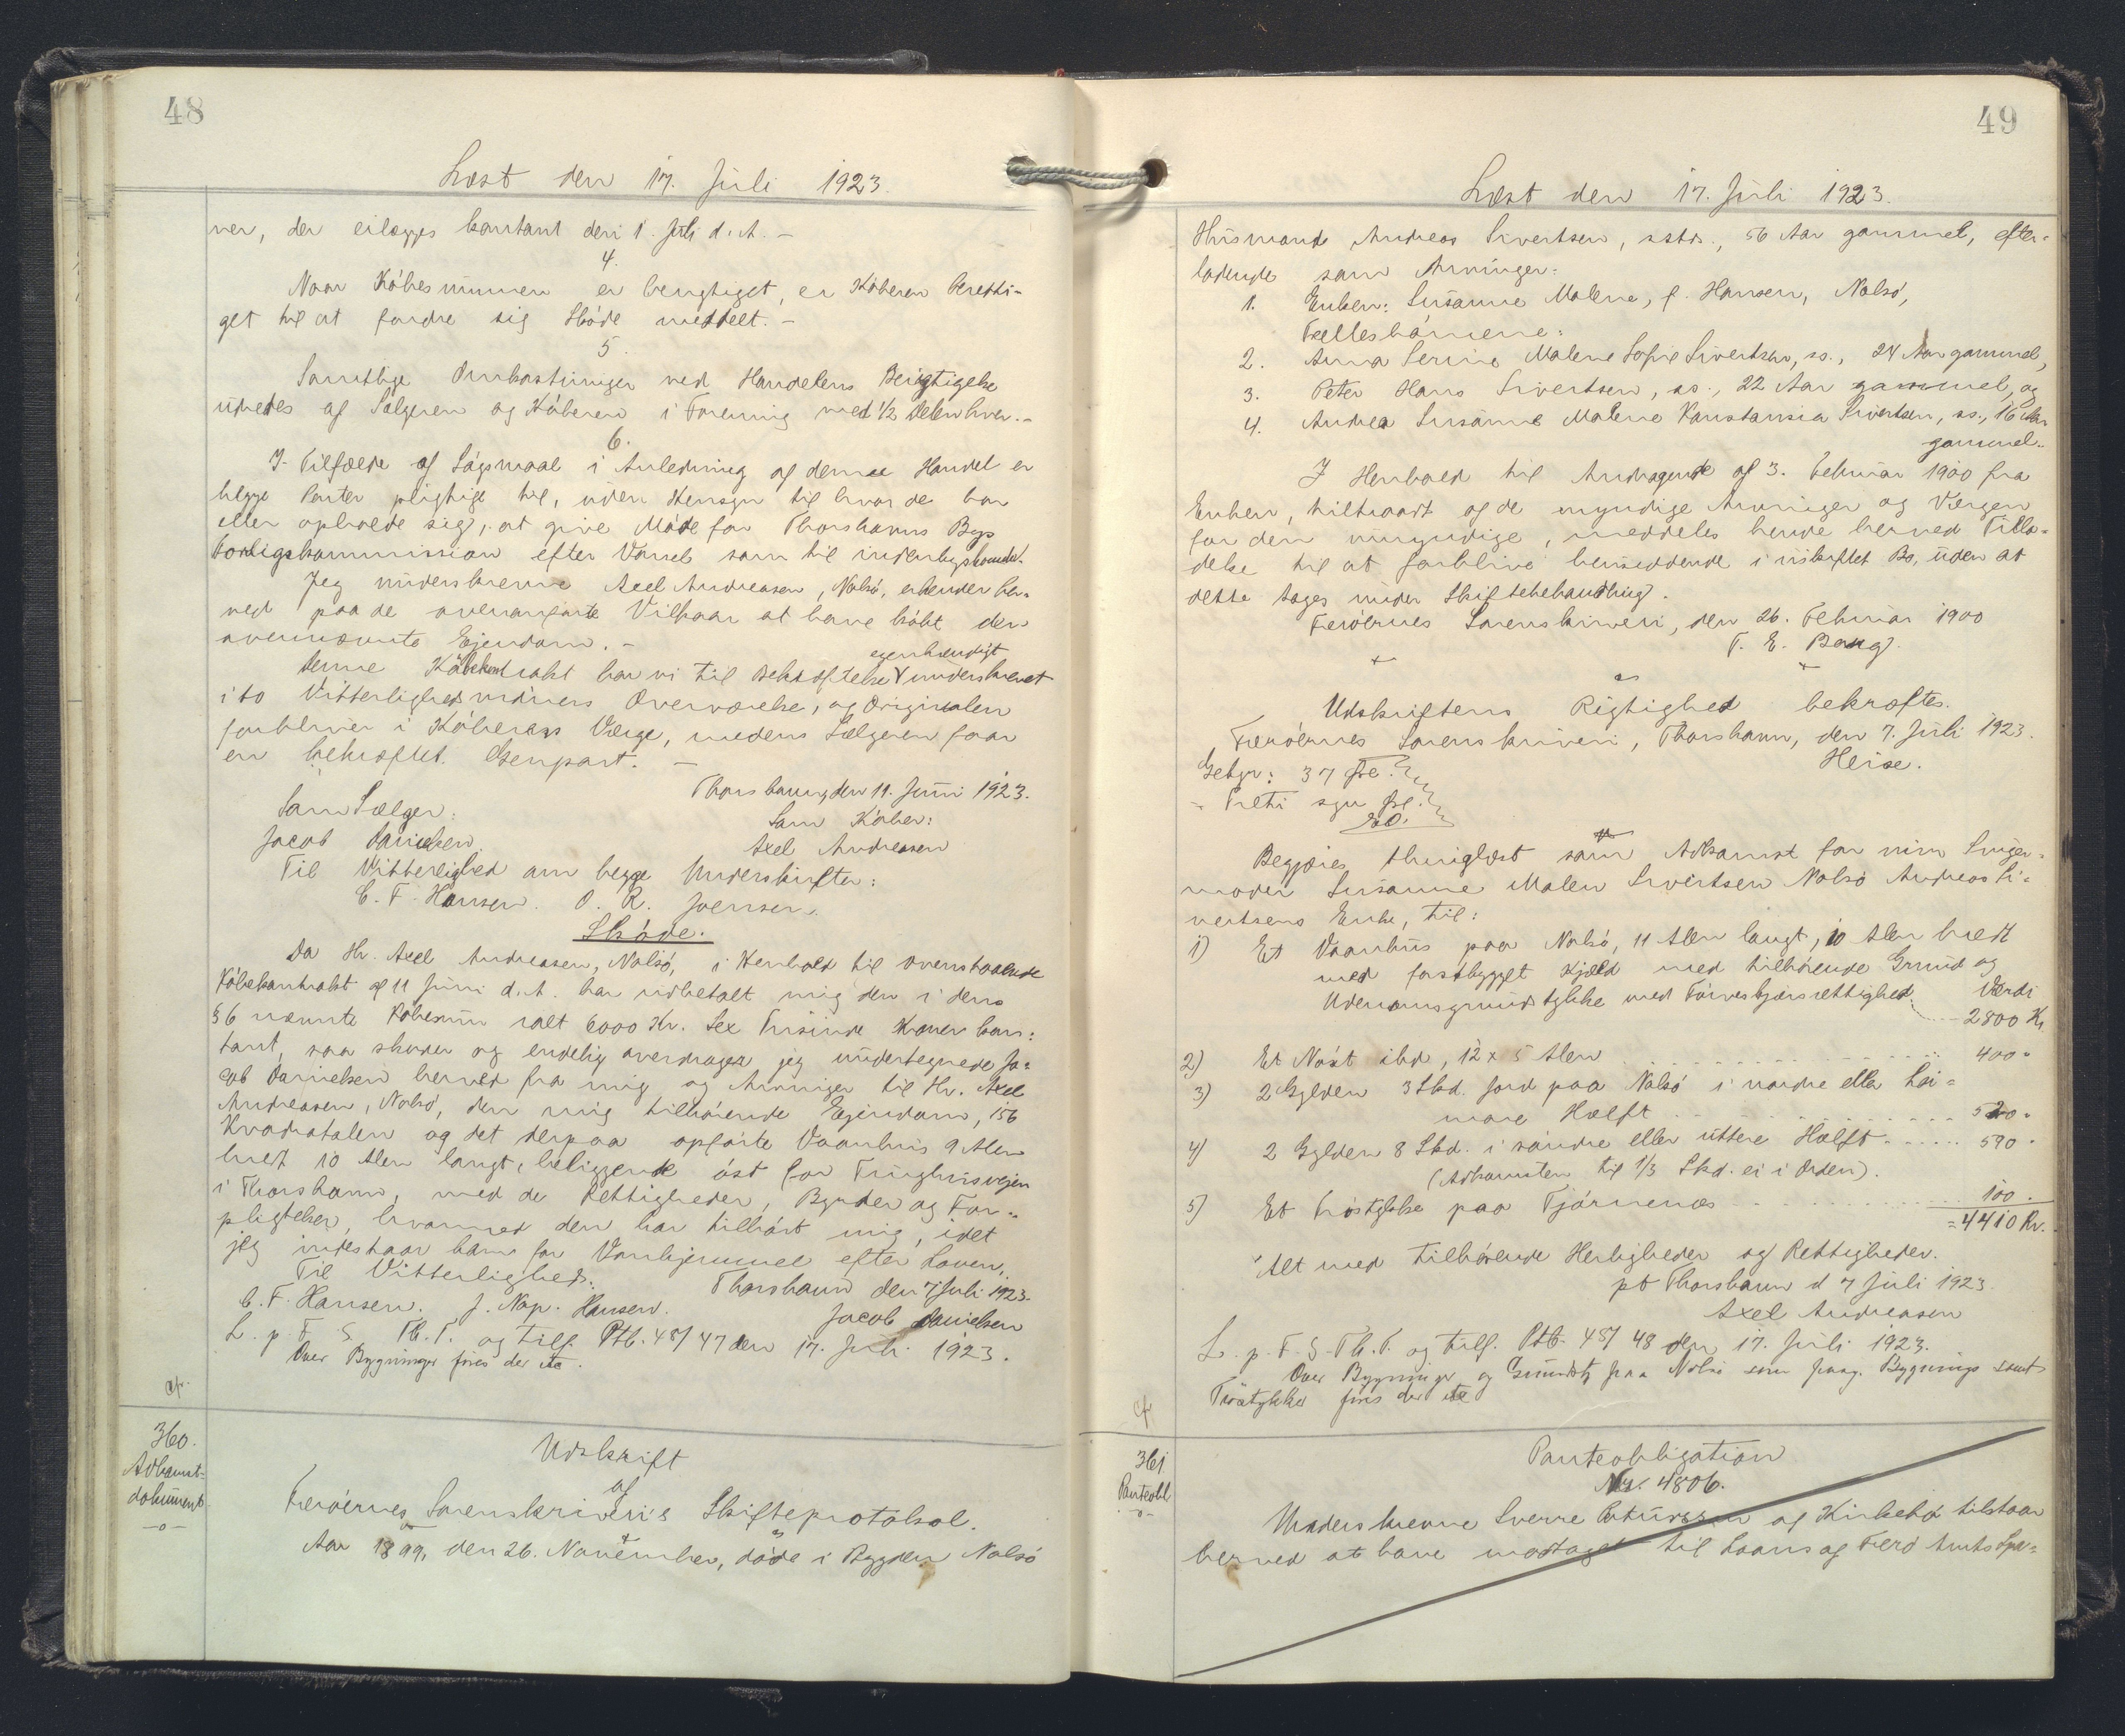 48
Læst den 17. Juli 1923.
ner, der erlægges kontant den 1. Juli d. A. -
4.
Naar Købesummen er berigtiget, er Køberen beretti-
get til at fordre sig Skøde meddelt. -
5.
Samtlige Omkostninger ved Handelens Berigtigelse
udredes af Sælgeren og Køberen i Forening med 1/2 Delen hver. -
6.
I Tilfælde af Søgsmaal i Anledning af denne Handel er
begge Parter pligtige til, uden Hensyn til hvor de bor
eller opholde sig, at give Møde for Thorshavns Bys
Forligskommission efter Varsel som til indenbys
Jeg underskrevne Axel Andreasen, Nolsø, erkender her-
ved paa de ovenanførte Vilkaar at have købt den
ovennævnte Ejendom. -
Denne Købekontrakt har vi til Bekræftelse egenhændigt underskrevet
i to Vitterlighedsmænds Overværelse, og Originalen
forbliver i Køberens Værge, medens Sælgeren faar
en bekræftet Genpart. -
Thorshavn, den 11. Juni 1923.
Som Sælger: Som Køber:
Jacob Danielsen Axel Andreasen
Til Vitterlighed om begge Underskrifter:
C. F. Hansen. O. R. Joensen.
Skøde.
Da Hr. Axel Andreasen, Nolsø, i Henhold til ovenstaaende
Købekontrakt af 11 Juni d. A. har udbetalt mig den i dens
§ 6 nævnte Købesum ialt 6000 Kr. Sex Tusinde Kroner kon-
tant, saa skøder og endelig overdrager jeg undertegnede Ja-
cob Danielsen herved fra mig og Arvinger til Hr. Axel
Andreasen, Nolsø, den mig tilhørende Ejendom, 156
Kvadratalen og det derpaa opførte Vaanhus 9 Alen
bredt 10 Alen langt, beliggende øst for Tinghusvejen
i Thorshavn, med de Rettigheder, Byrder og For-
pligtelser, hvormed den har tilhørt mig, idet
jeg indestaar ham for Vanhjemmel efter Loven.
Til Vitterlighed: Thorshavn den 7 Juli 1923.
C. F. Hansen. J. Nap. Hansen. Jacob Danielsen
L. p. F. S. Th. T. og tilf. Ptb. 48/47 den 17. Juli 1923.
Over Bygninger føres der ikke.
cfr.
360.
Adkomst-
dokument
-o-
Udskrift
af
Færøernes Sorenskriveri's Skifteprotokol.
Aar 1899, den 26. November, døde i Bygden Nolsø
49
Læst den 17. Juli 1923.
Husmand Andreas Sivertsen, sstds., 56 Aar gammel, efter-
ladende som Arvinger:
1. Enken: Susanne Malene, f. Hansen, Nolsø,
Fællesbørnene:
2. Anna Serine Malene Sofie Sivertsen, ss., 24 Aar gammel,
3. Peter Hans Sivertsen, ss., 22 Aar gammel, og
4. Andrea Susanne Malene Konstansia Sivertsen, ss., 16 Aar
gammel.
I Henhold til Andragende af 3. Februar 1900 fra
Enken, tiltraadt af de myndige Arvinger og Værgen
for den umyndige, meddeles hende herved Tilla-
delse til at forblive hensiddende i uskiftet Bo, uden at
dette tages under Skiftebehandling.
Færøernes Sorenskriveri, den 26. Februar 1900
T. E. Bang.
Udskriftens Rigtighed bekræftes.
Færøernes Sorenskriveri, Thorshavn, den 7. Juli 1923.
Heise.
Gebyr: 37 Øre.
- Treti syv Øre.
Begjæres thinglæst som Adkomst for min Sviger-
moder Susanne Malen Sivertsen Nolsø Andreas Si-
vertsens Enke, til:
1) Et Vaanhus paa Nolsø, 11 Alen langt, 10 Alen bredt
med fastbygget Kjæld med tilhørende Grund og
Udenomsgrundstykke med Tørveskjærsrettighed. Værdi
2800 Kr.
2) Et Nøst ibd, 12 x 5 Alen 400 "
3) 2 Gylden 3 Skd. Jord paa Nolsø i nordre eller hei-
mare Hælft 520 "
4) 2 Gylden 8 Skd. i søndre eller uttere Hælft 590 "
(Adkomsten til 1/3 Skd. ei i Orden).
5) Et Trøstykke paa Tjørnenæs 100.
= 4410 Kr.
Alt med tilhørende Herligheder og Rettigheder.
pt Thorshavn d 7 Juli 1923.
Axel Andreasen
L. p. F. S. Th. T. og tilf. Ptb. 48/48 den 17. Juli 1923.
Over Bygninger og Grundst. paa Nolsø som Bygnings samt
Trøstykker føres der ikke
cfr
361
Panteobl
-o-
Panteobligation
Nr. 4806.
Underskrevne Sverre Patursson af Kirkebø tilstaar
herved at have modtaget til Laans af Færø Amts Spa-